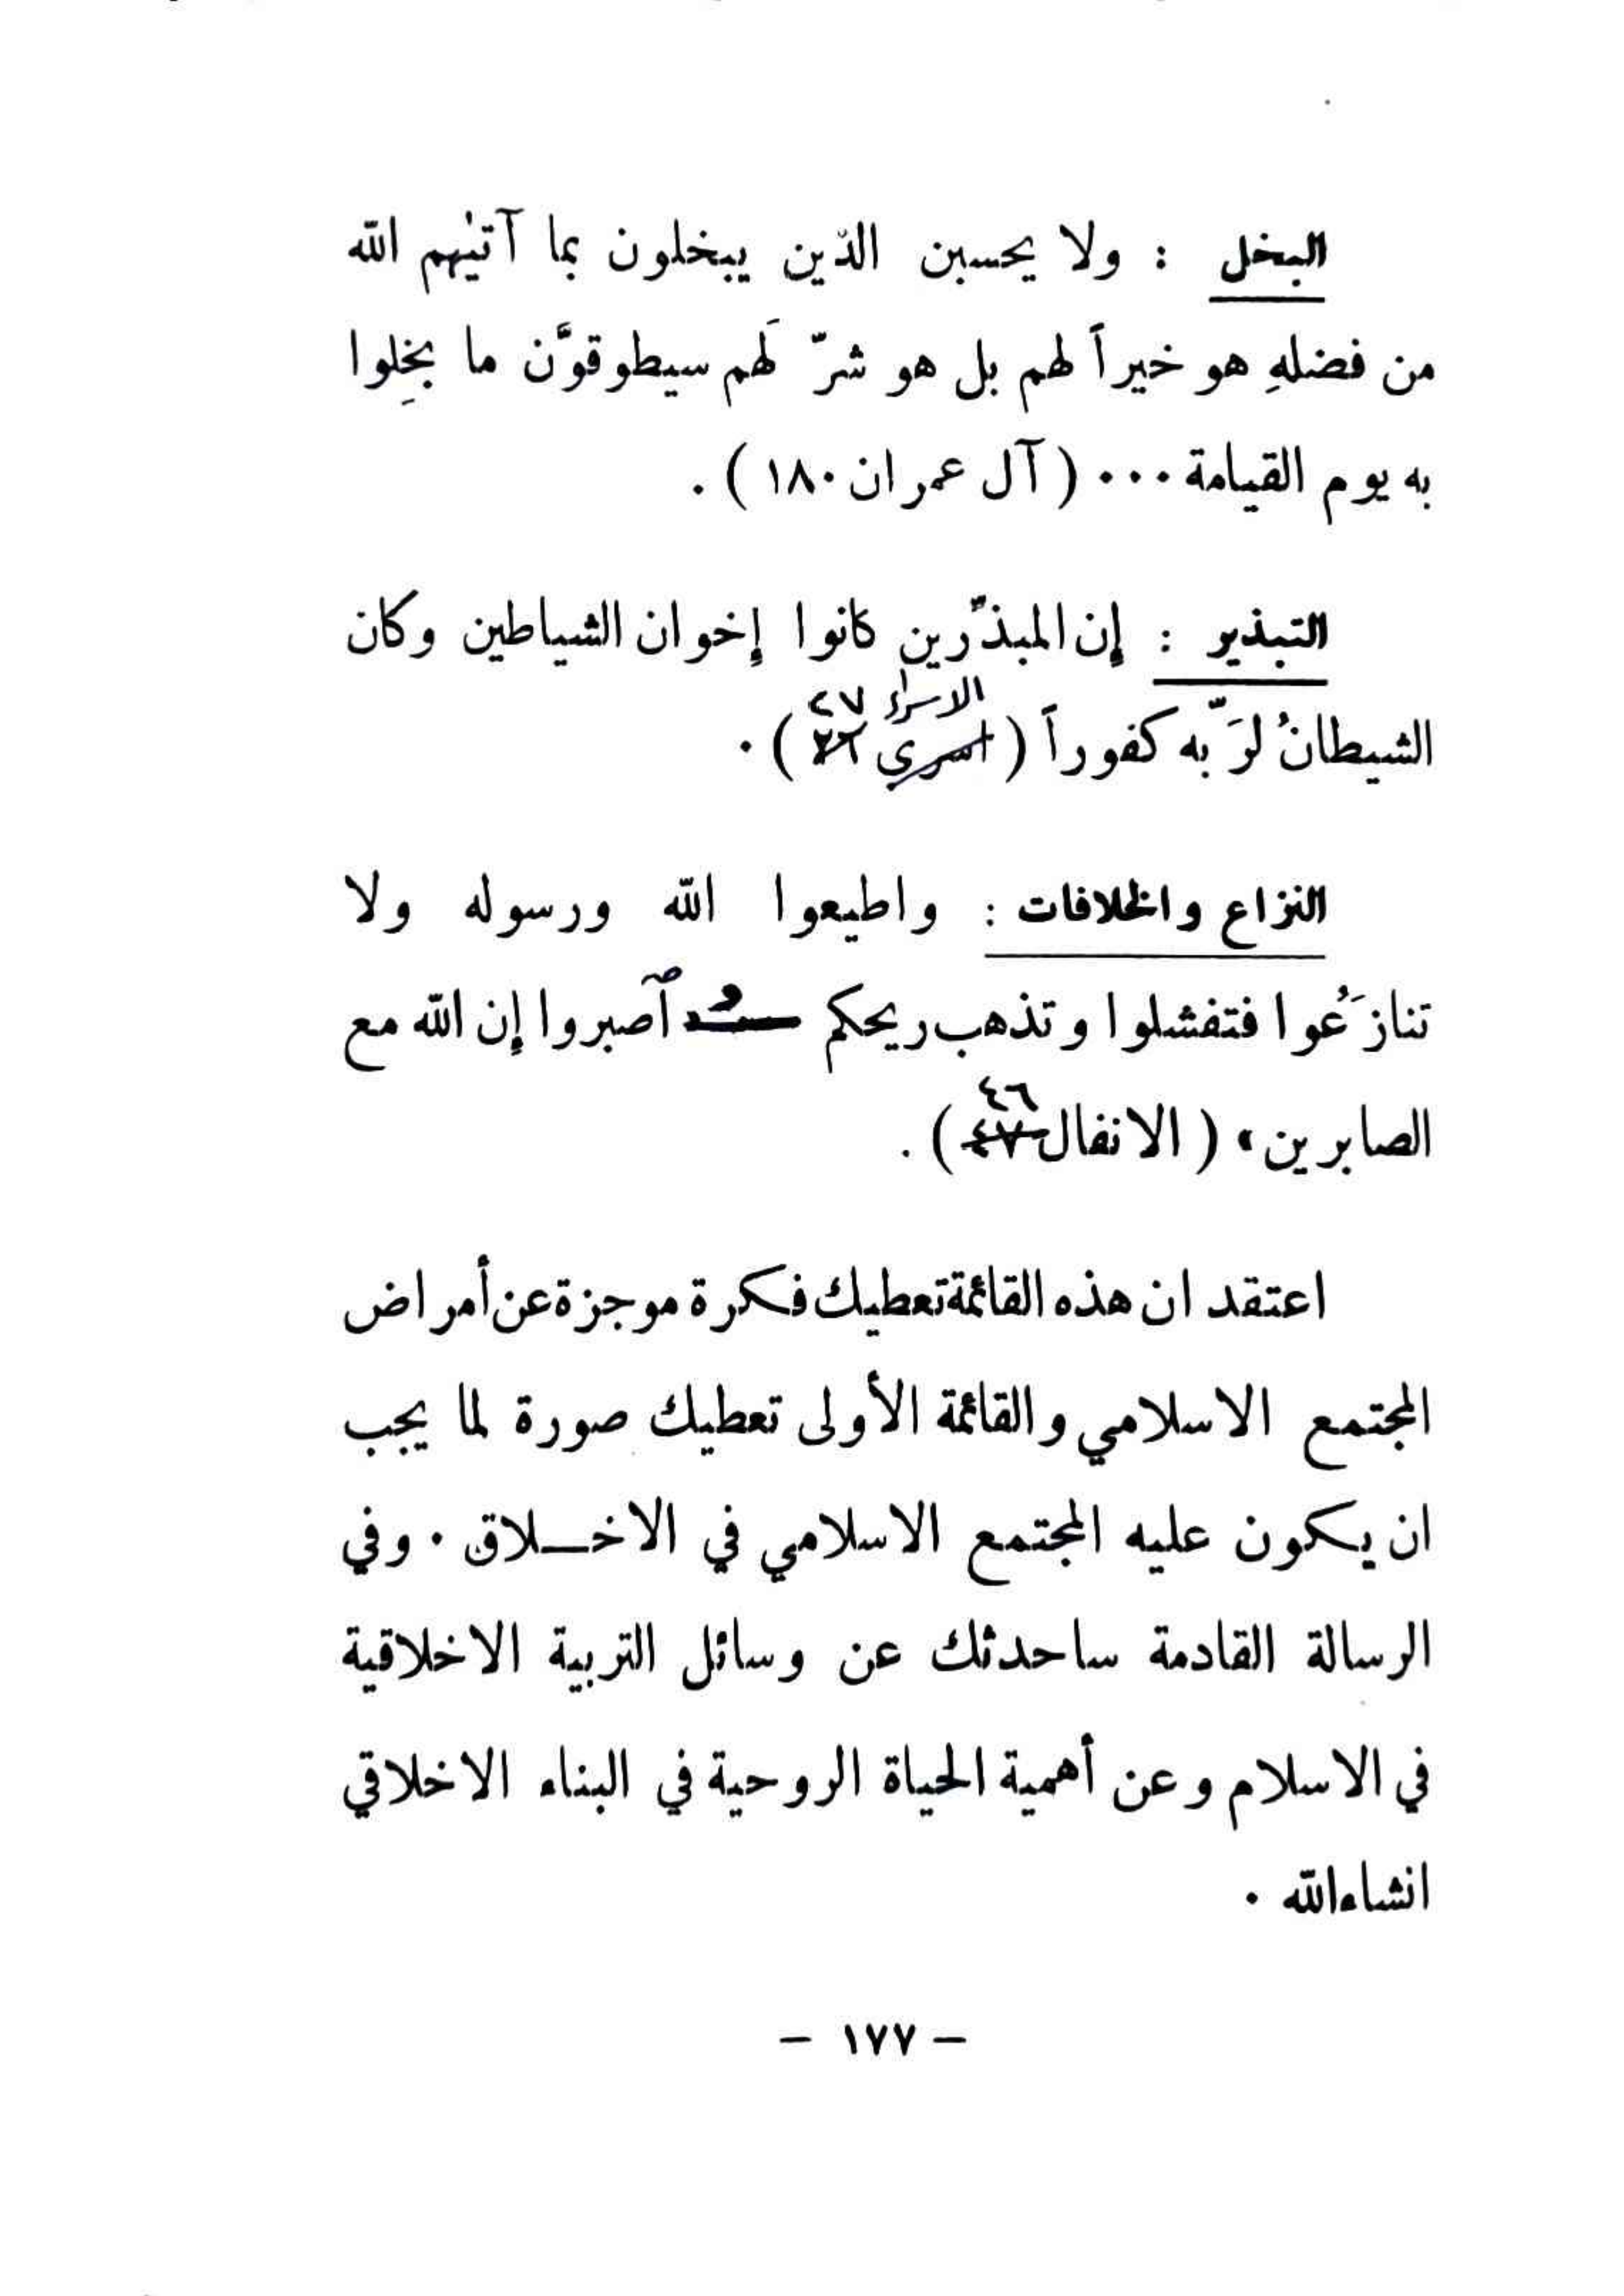 البخل : ولا يحسبن الذين يبخلون بما آتيٰهم الله
من فضلهِ هو خيراً لهم بل هو شرّ لَهم سيطوقوَّن ما بخِلوا
به يوم القيامة ... ( آل عمران ١٨٠ ) .
التبذير : إن المبذّرين كانوا إخوان الشياطين وكان
الاسراء ٢٧
الشيطانُ لرَبّه كفوراً ( اسرى ٢٦ ) .
النزاع والخلافات : واطيعوا الله ورسوله ولا
تنازَعُوا فتفشلوا وتذهب ريحكم و آصبروا إن الله مع
٤٦
الصابرين » ( الانفال ٤٧ ) .
اعتقد ان هذه القائمة تعطيك فكرة موجزة عن أمراض
المجتمع الاسلامي والقائمة الأولى تعطيك صورة لما يجب
ان يكون عليه المجتمع الاسلامي في الاخــلاق . وفي
الرسالة القادمة ساحدثك عن وسائل التربية الاخلاقية
في الاسلام وعن أهمية الحياة الروحية في البناء الاخلاقي
انشاءالله .
– ١٧٧ –